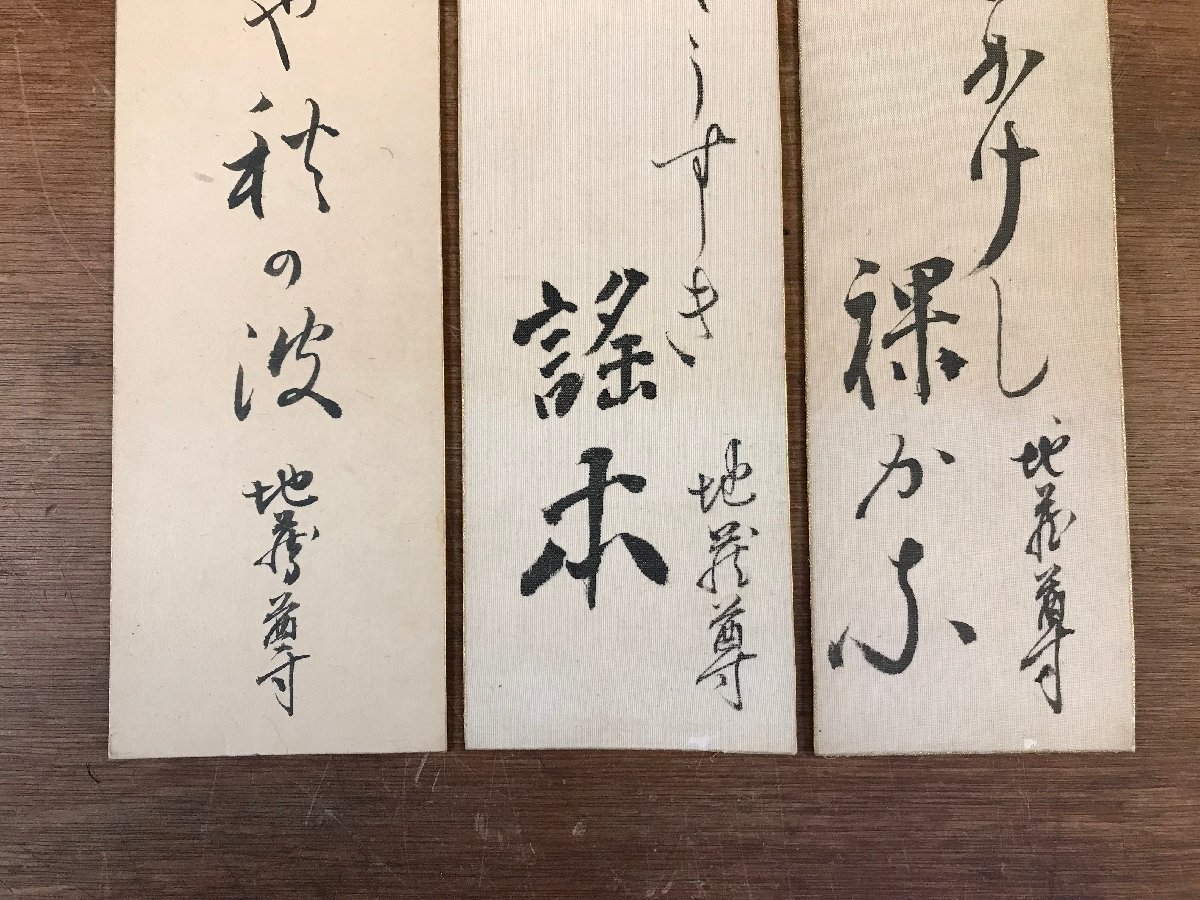 かけし
裸かな
地蔵尊
うすき
謡本
地蔵尊
や秋の波
地蔵尊